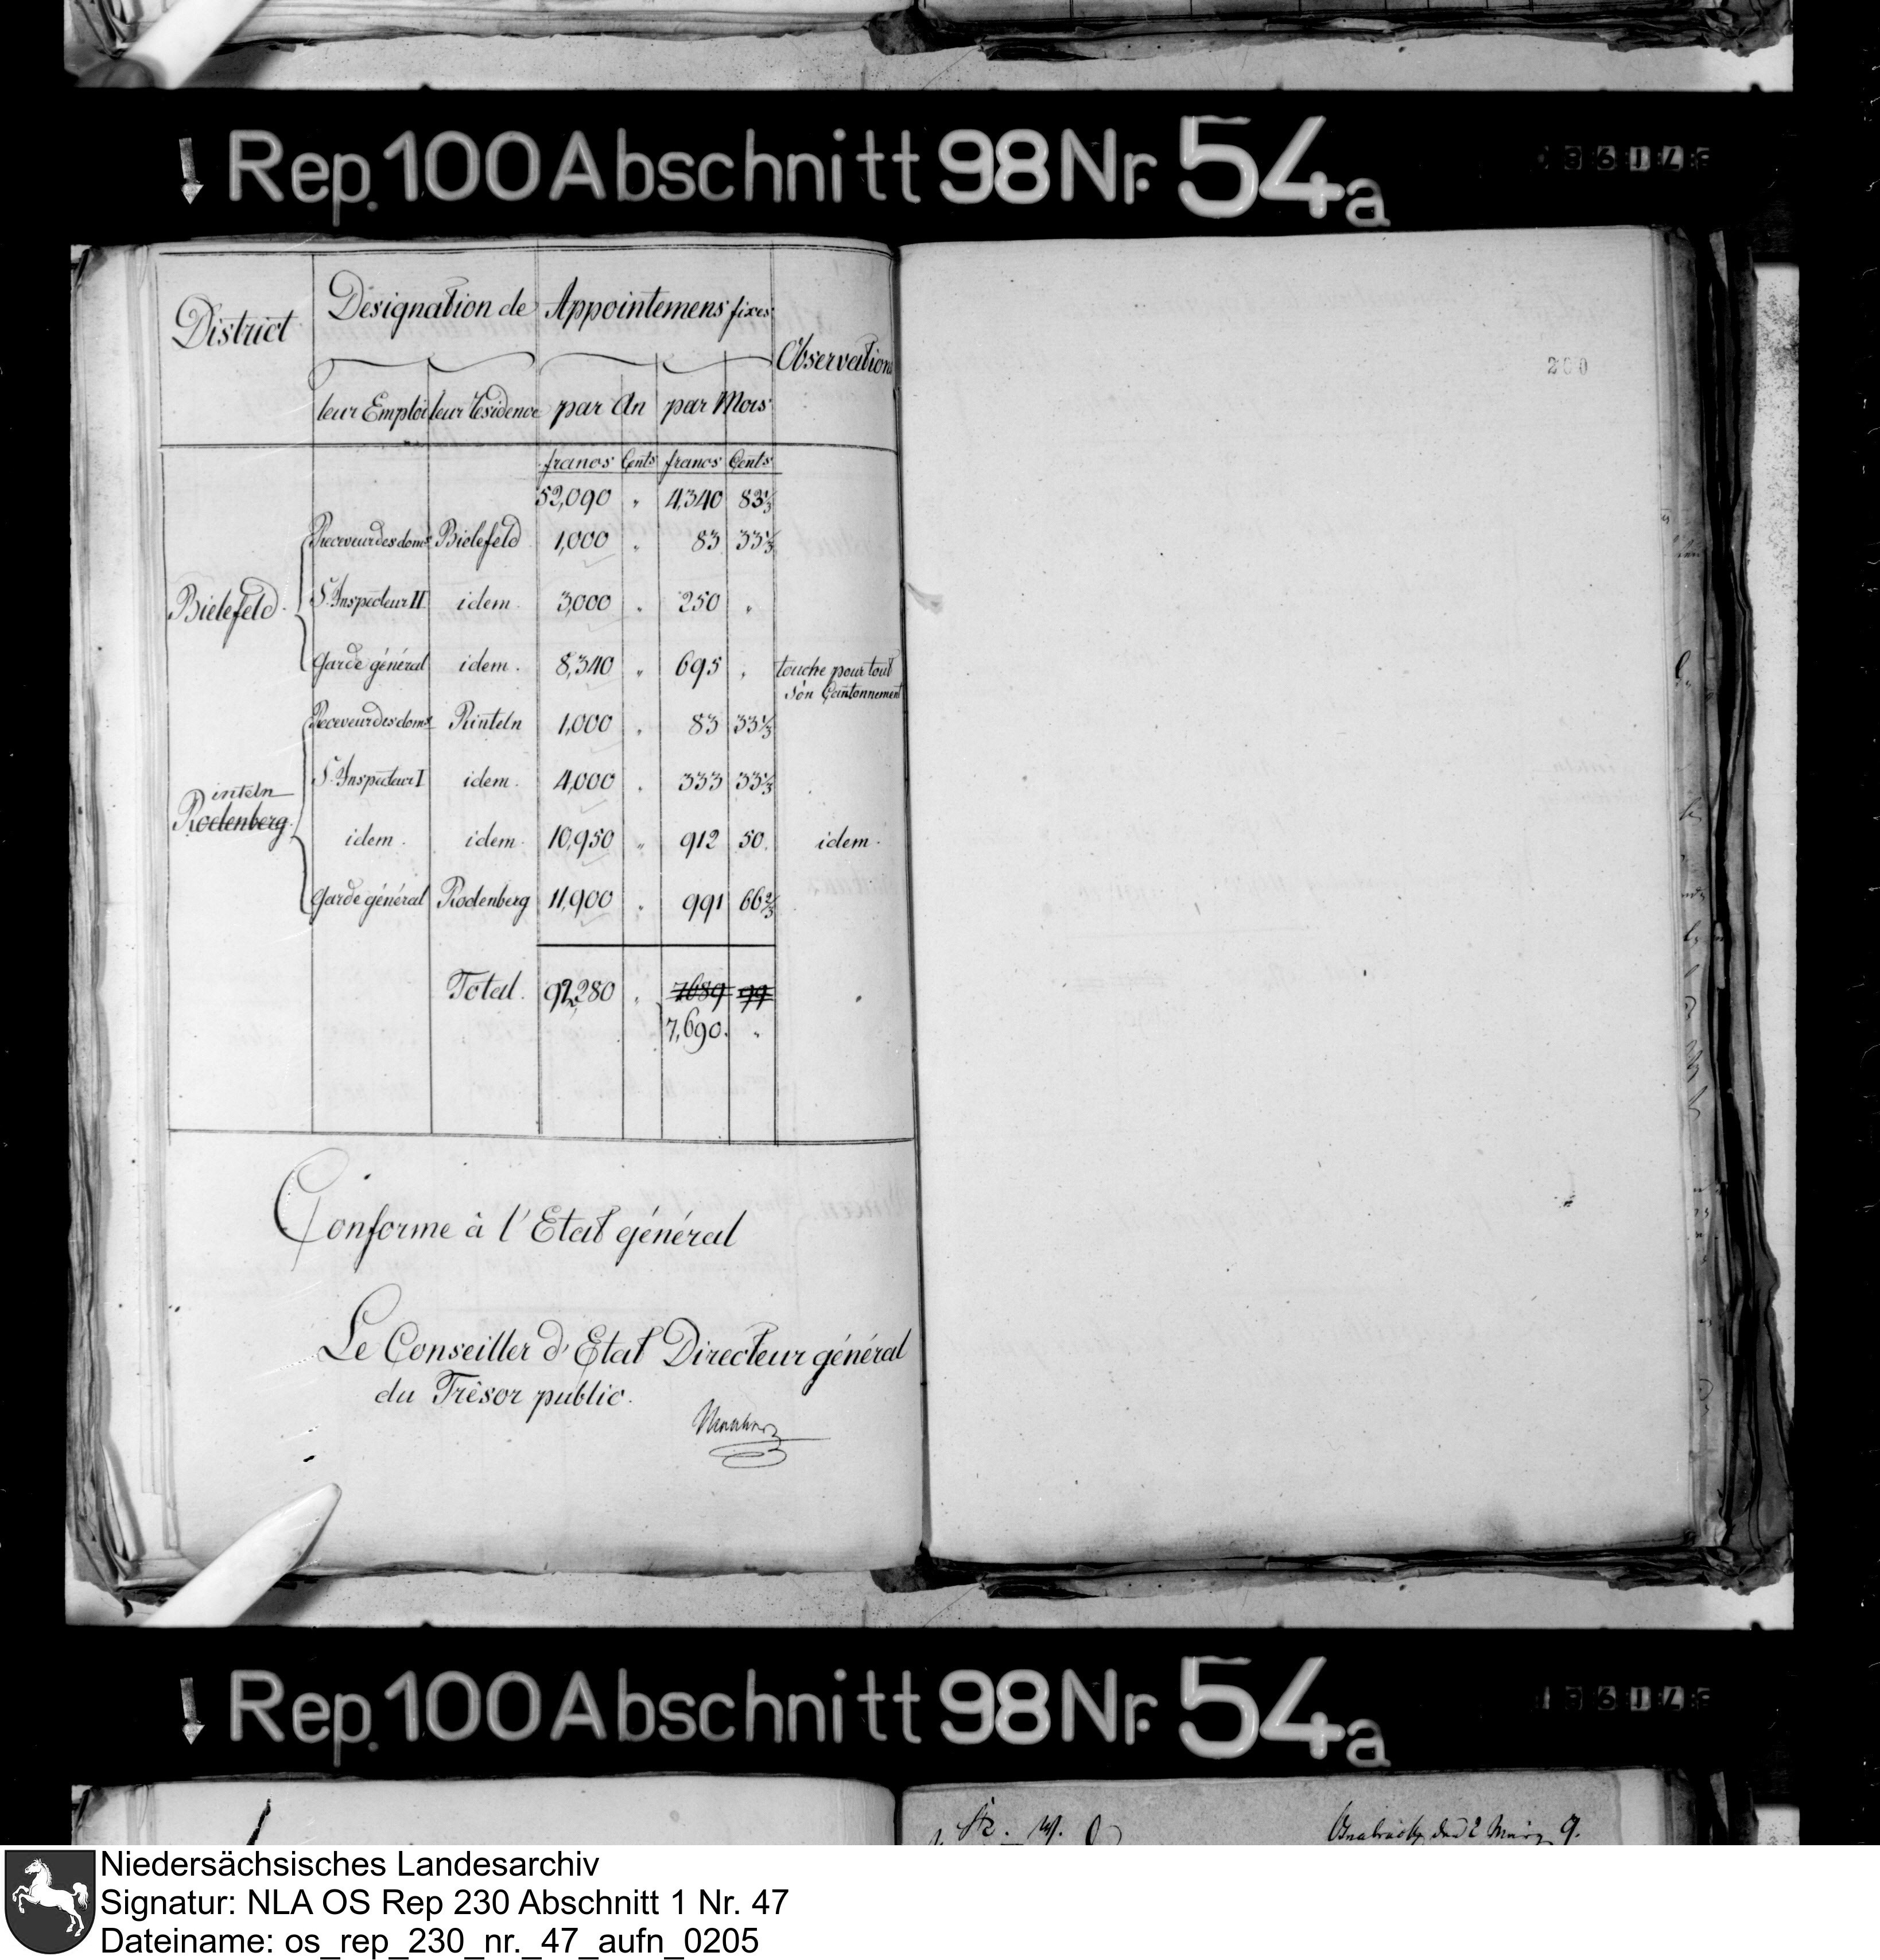 Rep. 100 Abschnitt 98 Nr. 54a
District
Désignation de
Appointemens fixes
Observations
leur Emploi
leur résidence
par An
par Mois
francs Cents francs Cents
52,090 " 4,340 83⅓
Bielefeld.
Receveur des dom.s Bielefeld 1,000 " 83 33⅓
S. Inspecteur II idem. 3,000 " 250 "
Garde général idem. 8,340 " 695 " touche pour tout
son Cantonnement
Receveur des dom.s Rinteln 1,000 " 83 33⅓
S. Inspecteur I idem. 4,000 " 333 33⅓
inteln
Rodenberg.
idem. idem. 10,950 " 912 50. idem.
Garde général Rodenberg 11,900 " 991 66⅔
Total. 92,280 " 7689 99
7,690. "
200
Conforme à l'Etat général
Le Conseiller d'Etat Directeur général
du Trésor public.
Rep. 100 Abschnitt 98 Nr. 54a
Osnabrück den 2 März 9.
Niedersächsisches Landesarchiv
Signatur: NLA OS Rep 230 Abschnitt 1 Nr. 47
Dateiname: os_rep_230_nr._47_aufn_0205